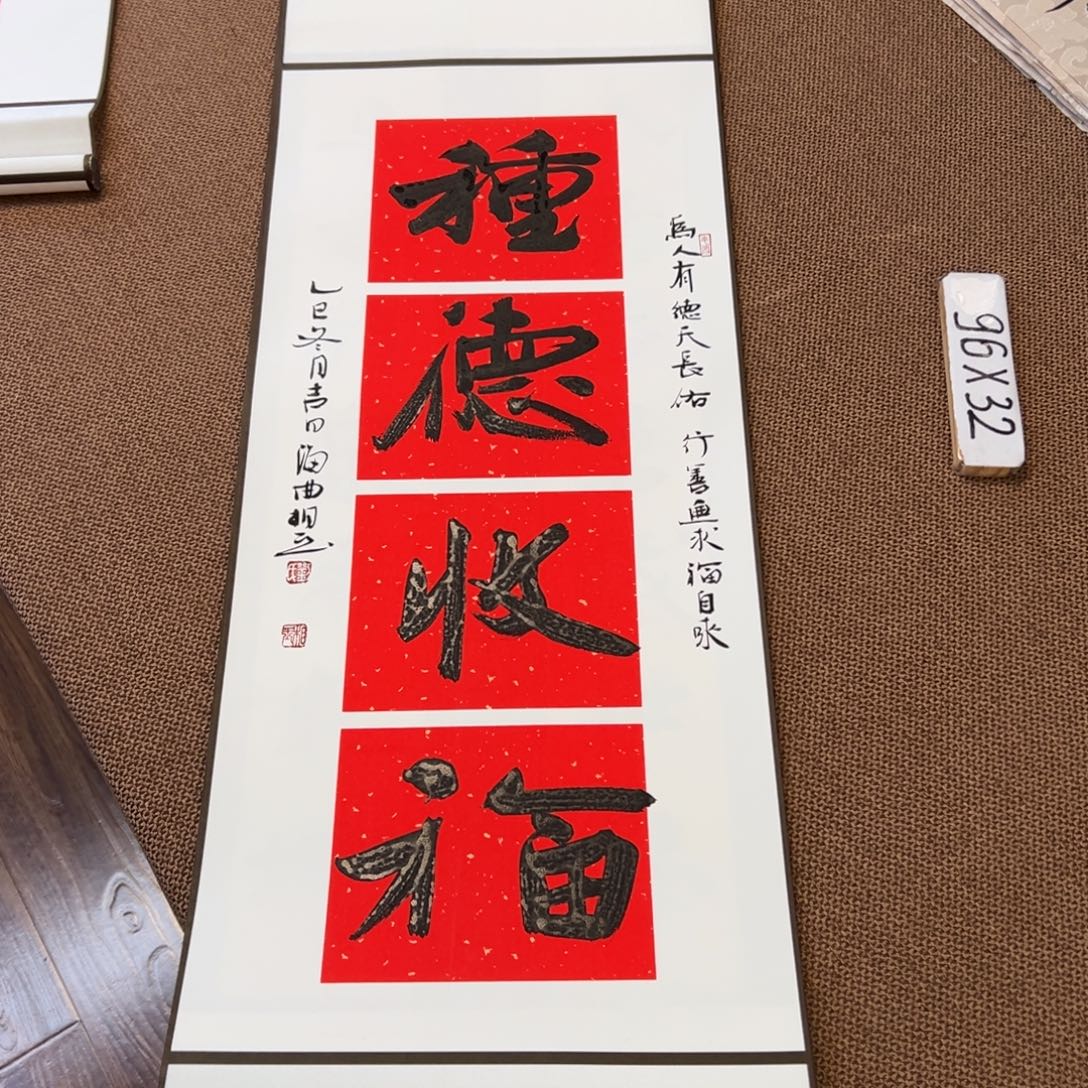 種
德
收
福
爲人有德天長佑 行善無求福自來
乙巳冬月吉日海曲
96X32